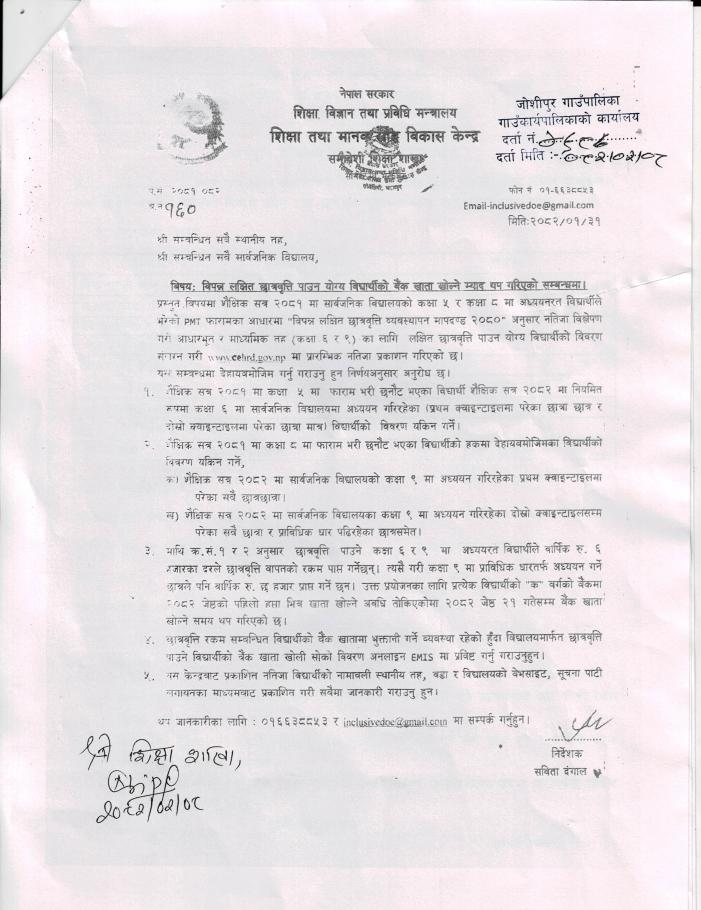 नेपाल सरकार
शिक्षा, विज्ञान तथा प्रविधि मन्त्रालय
शिक्षा तथा मानव स्रोत विकास केन्द्र
समावेशी शिक्षा शाखा
जोशीपुर गाउँपालिका
गाउँकार्यपालिकाको कार्यालय
दर्ता नं.
दर्ता मिति :-
प.सं २०८१ ०८२
च.न १६०
फोन नं ०१-६६३८८५३
Email-inclusivedoe@gmail.com
मिति:२०८२/०१/३१
श्री सम्बन्धित सबै स्थानीय तह,
श्री सम्बन्धित सबै सार्वजनिक विद्यालय,
विषय: विपन्न लक्षित छात्रवृत्ति पाउन योग्य विद्यार्थीको बैंक खाता खोल्ने म्याद थप गरिएको सम्बन्धमा।
प्रस्तुत विषयमा शैक्षिक सत्र २०८१ मा सार्वजनिक विद्यालयको कक्षा ५ र कक्षा ८ मा अध्ययनरत विद्यार्थीले
भरेको PMT फारामका आधारमा "विपन्न लक्षित छात्रवृत्ति व्यवस्थापन मापदण्ड २०८०" अनुसार नतिजा विश्लेषण
गरी आधारभूत र माध्यमिक तह (कक्षा ६ र ९) का लागि लक्षित छात्रवृत्ति पाउन योग्य विद्यार्थीको विवरण
संलग्न गरी www.cehrd.gov.np मा प्रारम्भिक नतिजा प्रकाशन गरिएको छ।
यस सम्बन्धमा देहायबमोजिम गर्नु गराउनु हुन निर्णयअनुसार अनुरोध छ।
१. शैक्षिक सत्र २०८१ मा कक्षा ५ मा फाराम भरी छनौट भएका विद्यार्थी शैक्षिक सत्र २०८२ मा नियमित
रूपमा कक्षा ६ मा सार्वजनिक विद्यालयमा अध्ययन गरिरहेका (प्रथम क्वाइन्टाइलमा परेका छात्रा छात्र र
दोस्रो क्वाइन्टाइलमा परेका छात्रा मात्र) विद्यार्थीको विवरण यकिन गर्ने।
२. शैक्षिक सत्र २०८१ मा कक्षा ८ मा फाराम भरी छनौट भएका विद्यार्थीको हकमा देहायबमोजिमका विद्यार्थीको
विवरण यकिन गर्ने,
क) शैक्षिक सत्र २०८२ मा सार्वजनिक विद्यालयको कक्षा ९ मा अध्ययन गरिरहेका प्रथम क्वाइन्टाइलमा
परेका सबै छात्रछात्रा।
ख) शैक्षिक सत्र २०८२ मा सार्वजनिक विद्यालयका कक्षा ९ मा अध्ययन गरिरहेका दोस्रो क्वाइन्टाइलसम्म
परेका सबै छात्रा र प्राविधिक धार पढिरहेका छात्रसमेत।
३. माथि क्र.सं.१ र २ अनुसार छात्रवृत्ति पाउने कक्षा ६ र ९ मा अध्ययरत विद्यार्थीले वार्षिक रु. ६
हजारका दरले छात्रवृत्ति बापतको रकम पाप्त गर्नेछन्। त्यसै गरी कक्षा ९ मा प्राविधिक धारतर्फ अध्ययन गर्ने
छात्रले पनि वार्षिक रु. छ हजार प्राप्त गर्ने छन्। उक्त प्रयोजनका लागि प्रत्येक विद्यार्थीको "क" वर्गको बैंकमा
२०८२ जेष्ठको पहिलो हप्ता भित्र खाता खोल्ने अवधि तोकिएकोमा २०८२ जेष्ठ २१ गतेसम्म बैंक खाता
खोल्ने समय थप गरिएको छ।
४. छात्रवृत्ति रकम सम्बन्धित विद्यार्थीको बैंक खातामा भुक्तानी गर्ने व्यवस्था रहेको हुँदा विद्यालयमार्फत छात्रवृत्ति
पाउने विद्यार्थीको बैंक खाता खोली सोको विवरण अनलाइन EMIS मा प्रविष्ट गर्नु गराउनुहुन।
५. यस केन्द्रबाट प्रकाशित नतिजा विद्यार्थीको नामावली स्थानीय तह, वडा र विद्यालयको वेभसाइट, सूचना पाटी
लगायतका माध्यमबाट प्रकाशित गरी सबैमा जानकारी गराउनु हुन।
थप जानकारीका लागि : ०१६६३८८५३ र inclusivedoe@gmail.com मा सम्पर्क गर्नुहुन।
निर्देशक
सविता दंगाल
श्री शिक्षा शाखा,
२०८२/०२/०८